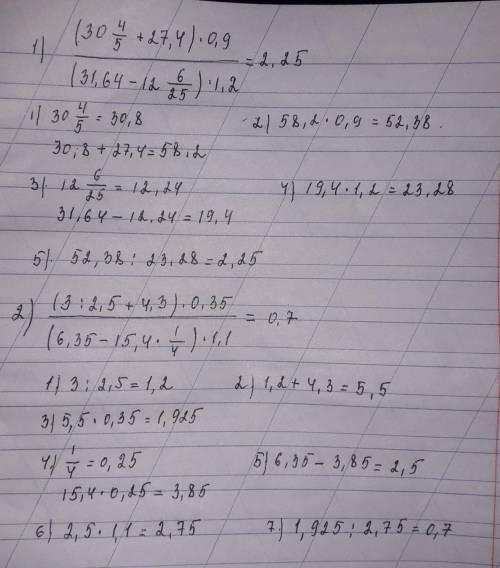 1) ((30 4/5 + 27,4) · 0,9) / ((31,64 − 12 6/25) · 1,2) = 2,25
1) 30 4/5 = 30,8
30,8 + 27,4 = 58,2
2) 58,2 · 0,9 = 52,38.
3) 12 6/25 = 12,24
31,64 − 12,24 = 19,4
4) 19,4 · 1,2 = 23,28
5) 52,38 : 23,28 = 2,25
2) ((3 : 2,5 + 4,3) · 0,35) / ((6,35 − 15,4 · 1/4) · 1,1) = 0,7
1) 3 : 2,5 = 1,2
2) 1,2 + 4,3 = 5,5
3) 5,5 · 0,35 = 1,925
4) 1/4 = 0,25
15,4 · 0,25 = 3,85
5) 6,35 − 3,85 = 2,5
6) 2,5 · 1,1 = 2,75
7) 1,925 : 2,75 = 0,7